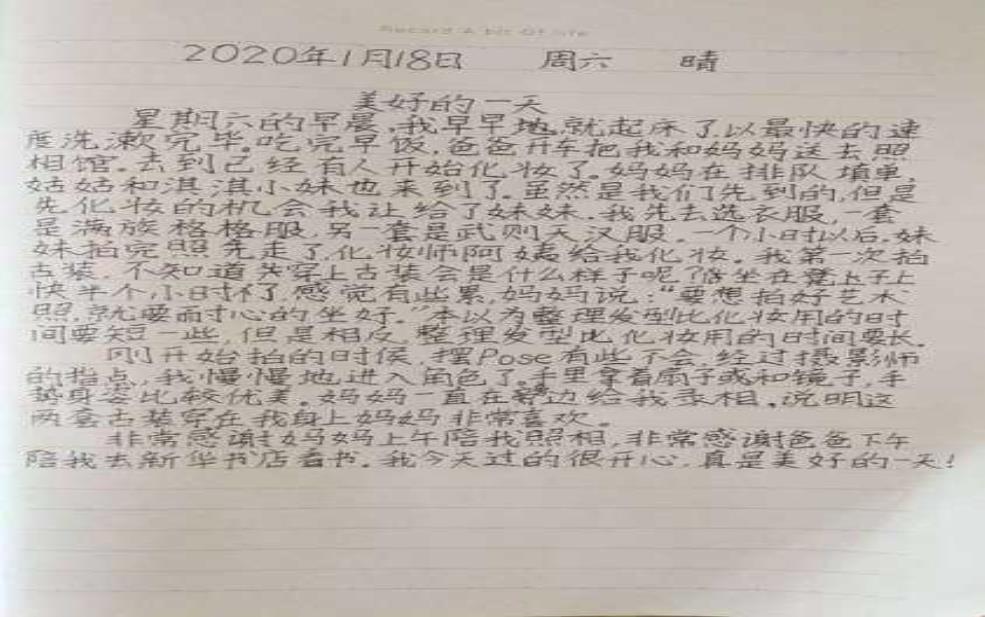 Record A bit Of life
2020年1月18日 周六 晴
美好的一天
星期六的早晨,我早早地,就起床了以最快的速
度洗漱完毕。吃完早饭,爸爸开车把我和妈妈送去照
相馆。去到已经有人开始化妆了。妈妈在排队填单,
姑姑和淇淇小妹也来到了。虽然是我们先到的,但是
先化妆的机会我让给了妹妹。我先去选衣服,一套
是满族格格服,另一套是武则天汉服。一个小时以后,妹
妹拍完照先走了,化妆师阿姨给我化妆。我第一次拍
古装,不知道我穿上古装会是什么样子呢?坐在凳子上
快半个小时了,感觉有些累,妈妈说:“要想拍好艺术
照,就要耐心的坐好。”本以为整理发型比化妆用的时
间要短一些,但是相反,整理发型比化妆用的时间要长。
刚开始拍的时侯,摆Pose有些不会,经过摄影师
的指点,我慢慢地进入角色了。手里拿着扇子或和镜子,手
势身姿比较优美。妈妈一直在旁边给我录相,说明这
两套古装穿在我身上妈妈非常喜欢。
非常感谢妈妈上午陪我照相,非常感谢爸爸下午
陪我去新华书店看书。我今天过的很开心,真是美好的一天!